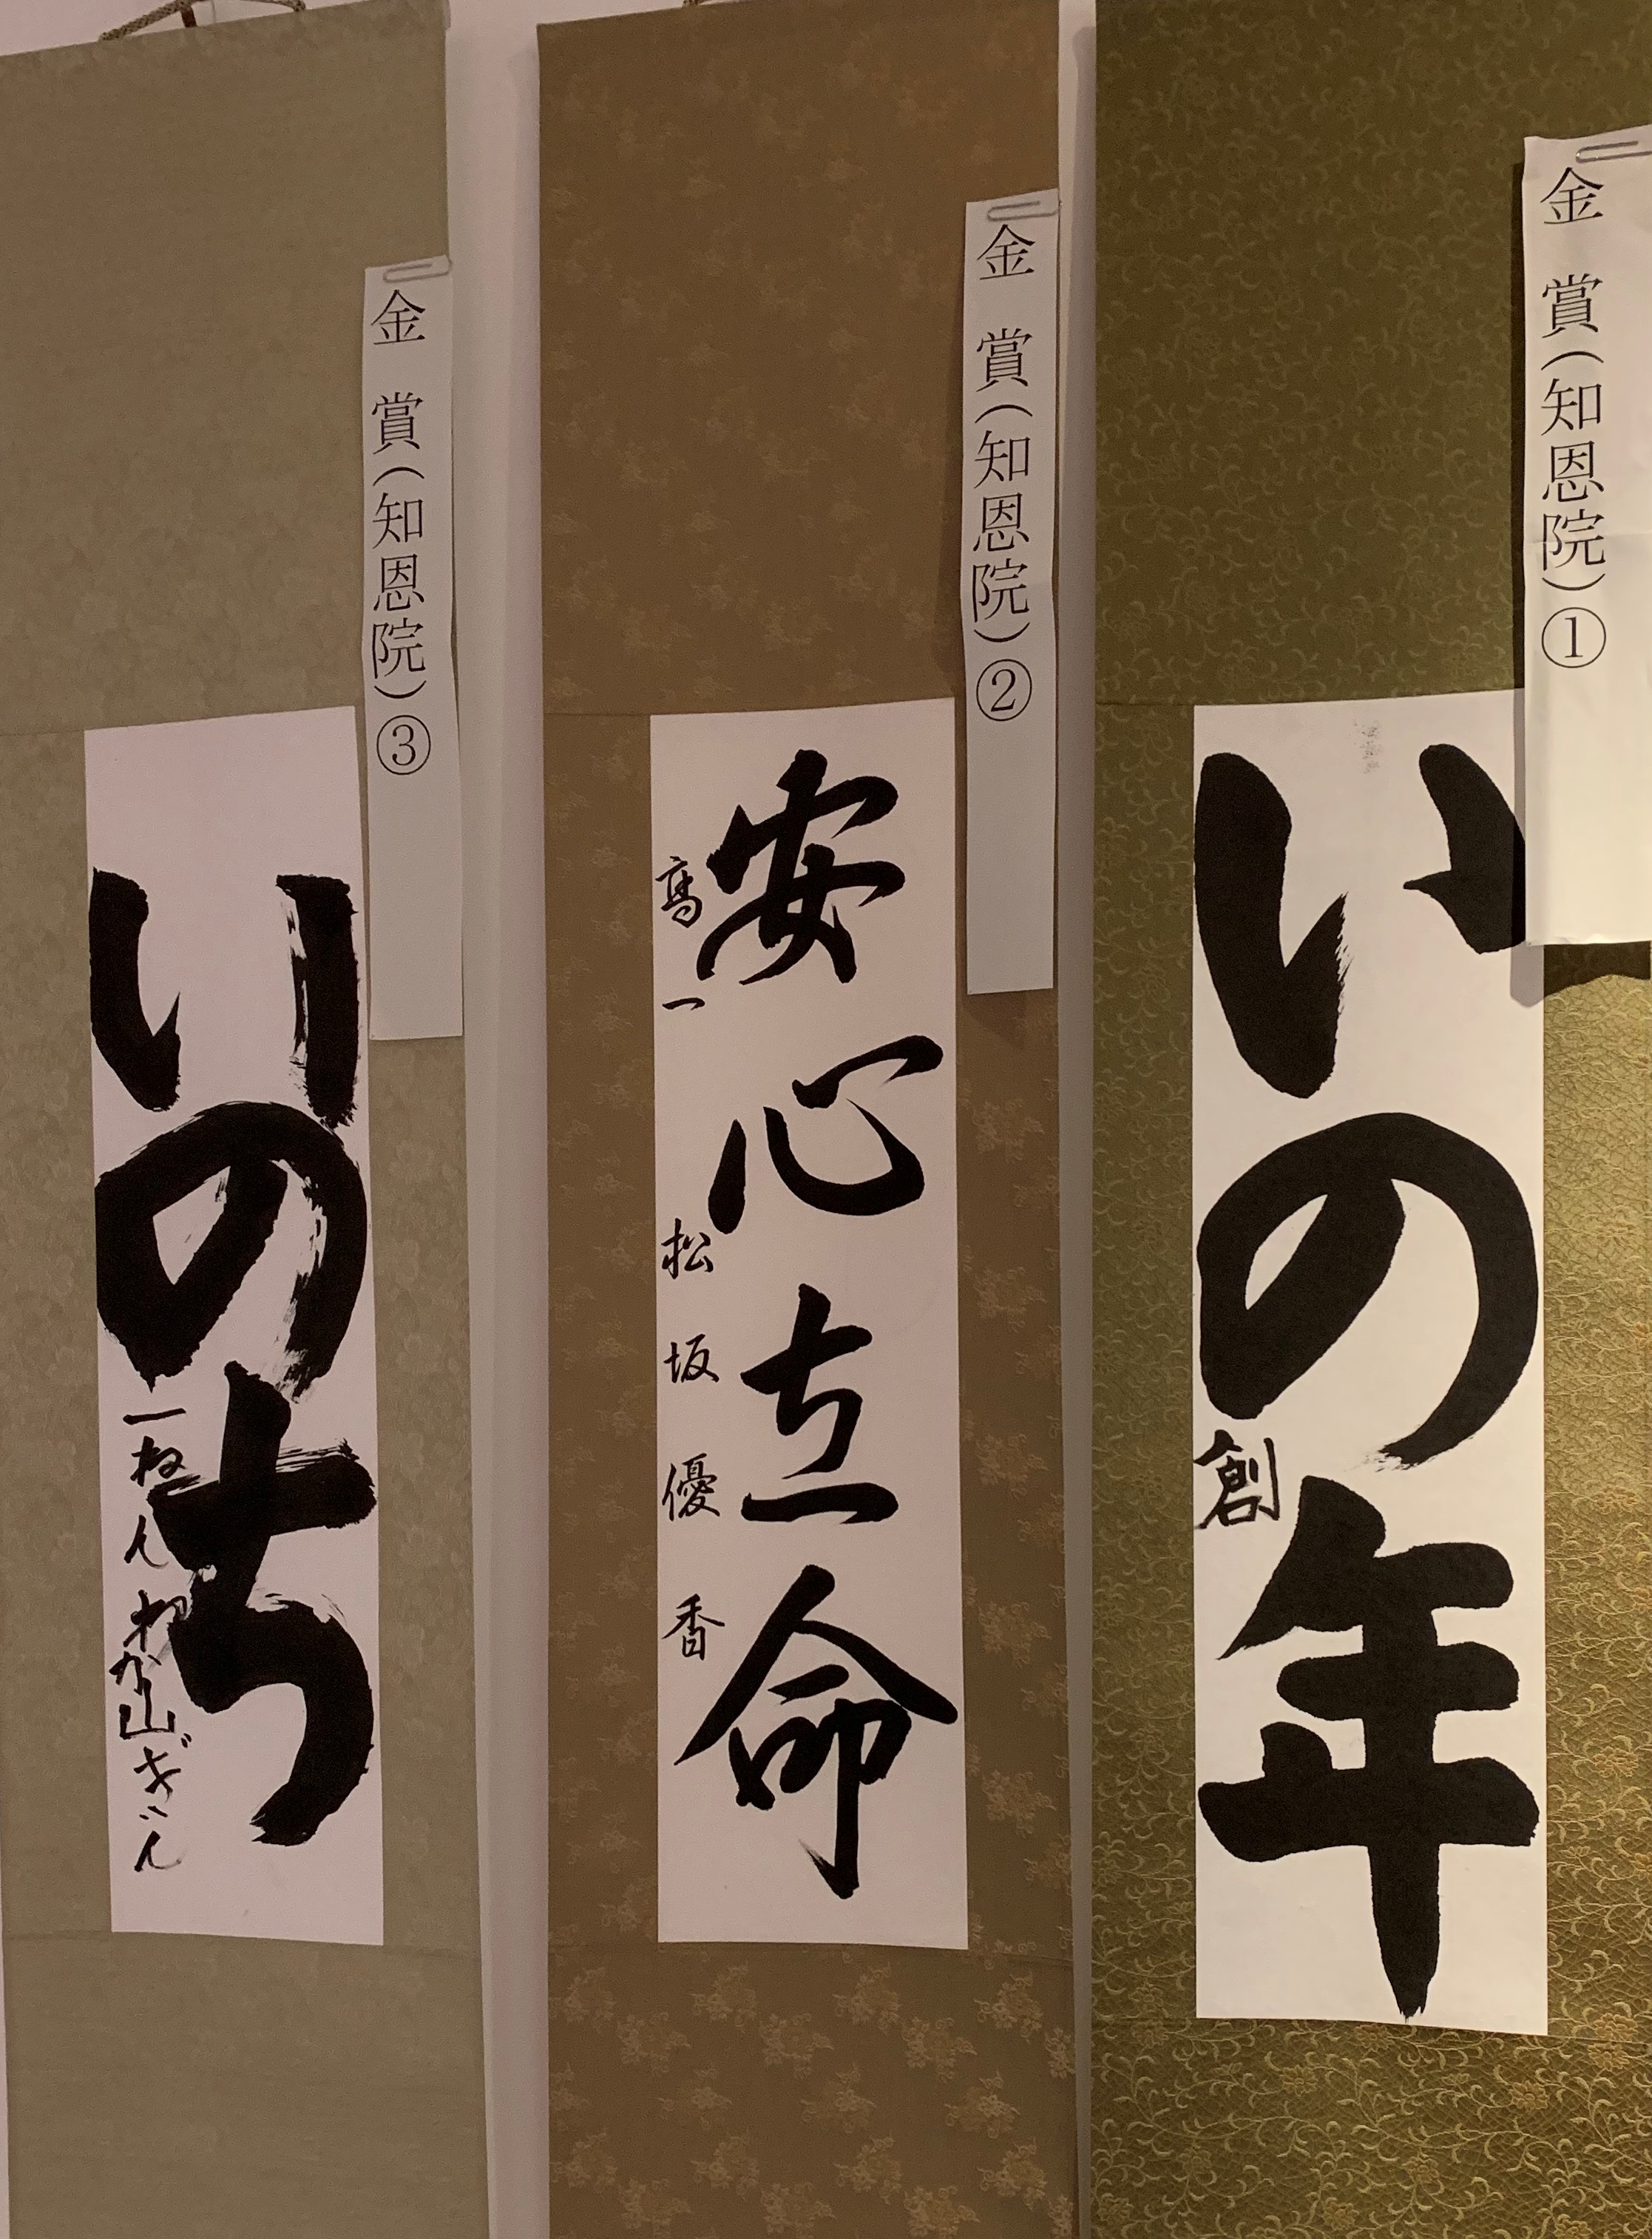 金 賞(知恩院)①
いの年
創
金 賞(知恩院)②
安心立命
高一 松坂優香
金 賞(知恩院)③
いのち
一ねん わか山ぎん